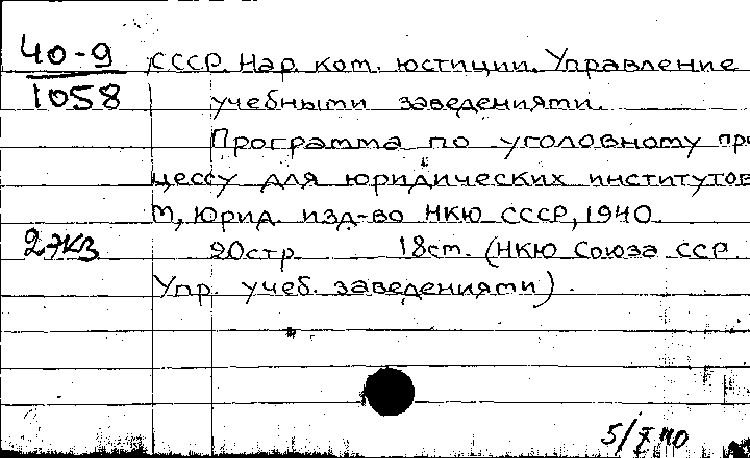 40-9
1058
СССР. Нар. ком. юстиции. Управление
учебными заведениями.
Программа по уголовному про
цессу для юридических институтов
М, Юрид. изд-во НКЮ СССР, 1940.
2 экз
20стр 18ст. (НКЮ Союза ССР.
Упр. учеб. заведениями).